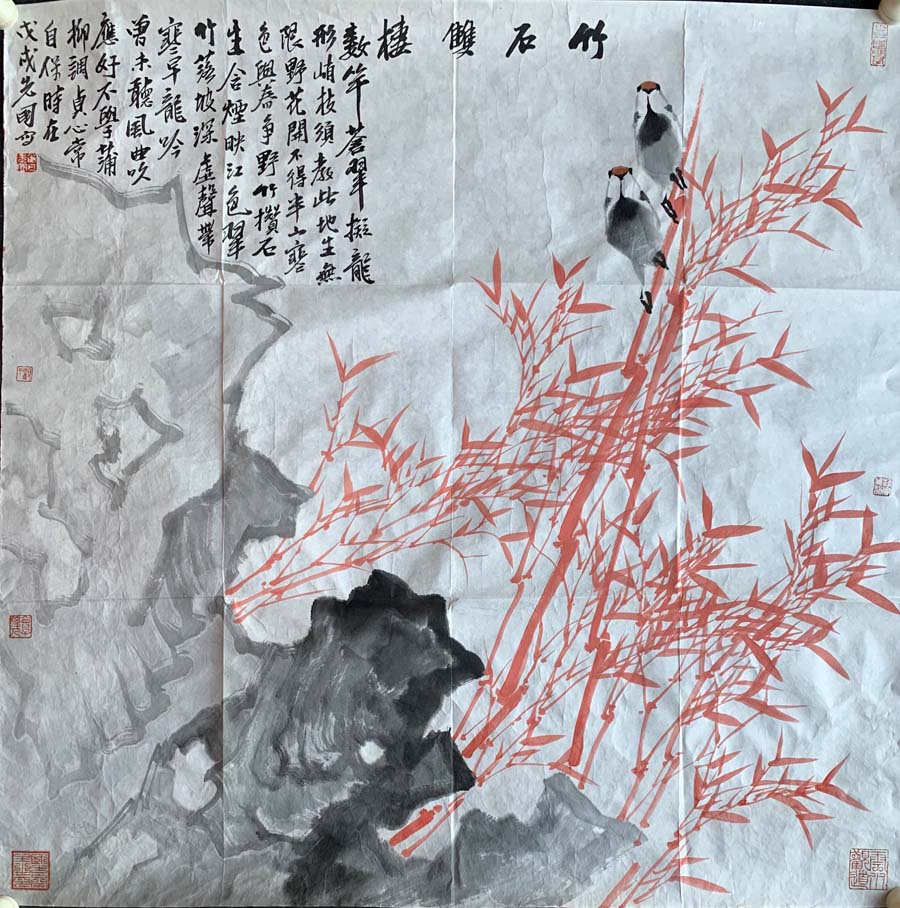 竹石雙棲
數竿蒼翠擬龍
形峭拔須教此地生無
限野花開不得半山寒
色與春爭野竹攢石
生含煙映江色翠
竹落坡深虛聲帶
寒早龍吟
曾未聽風曲吹
應好不學蒲
柳調貞心常
自保時在
戊戌先國寫